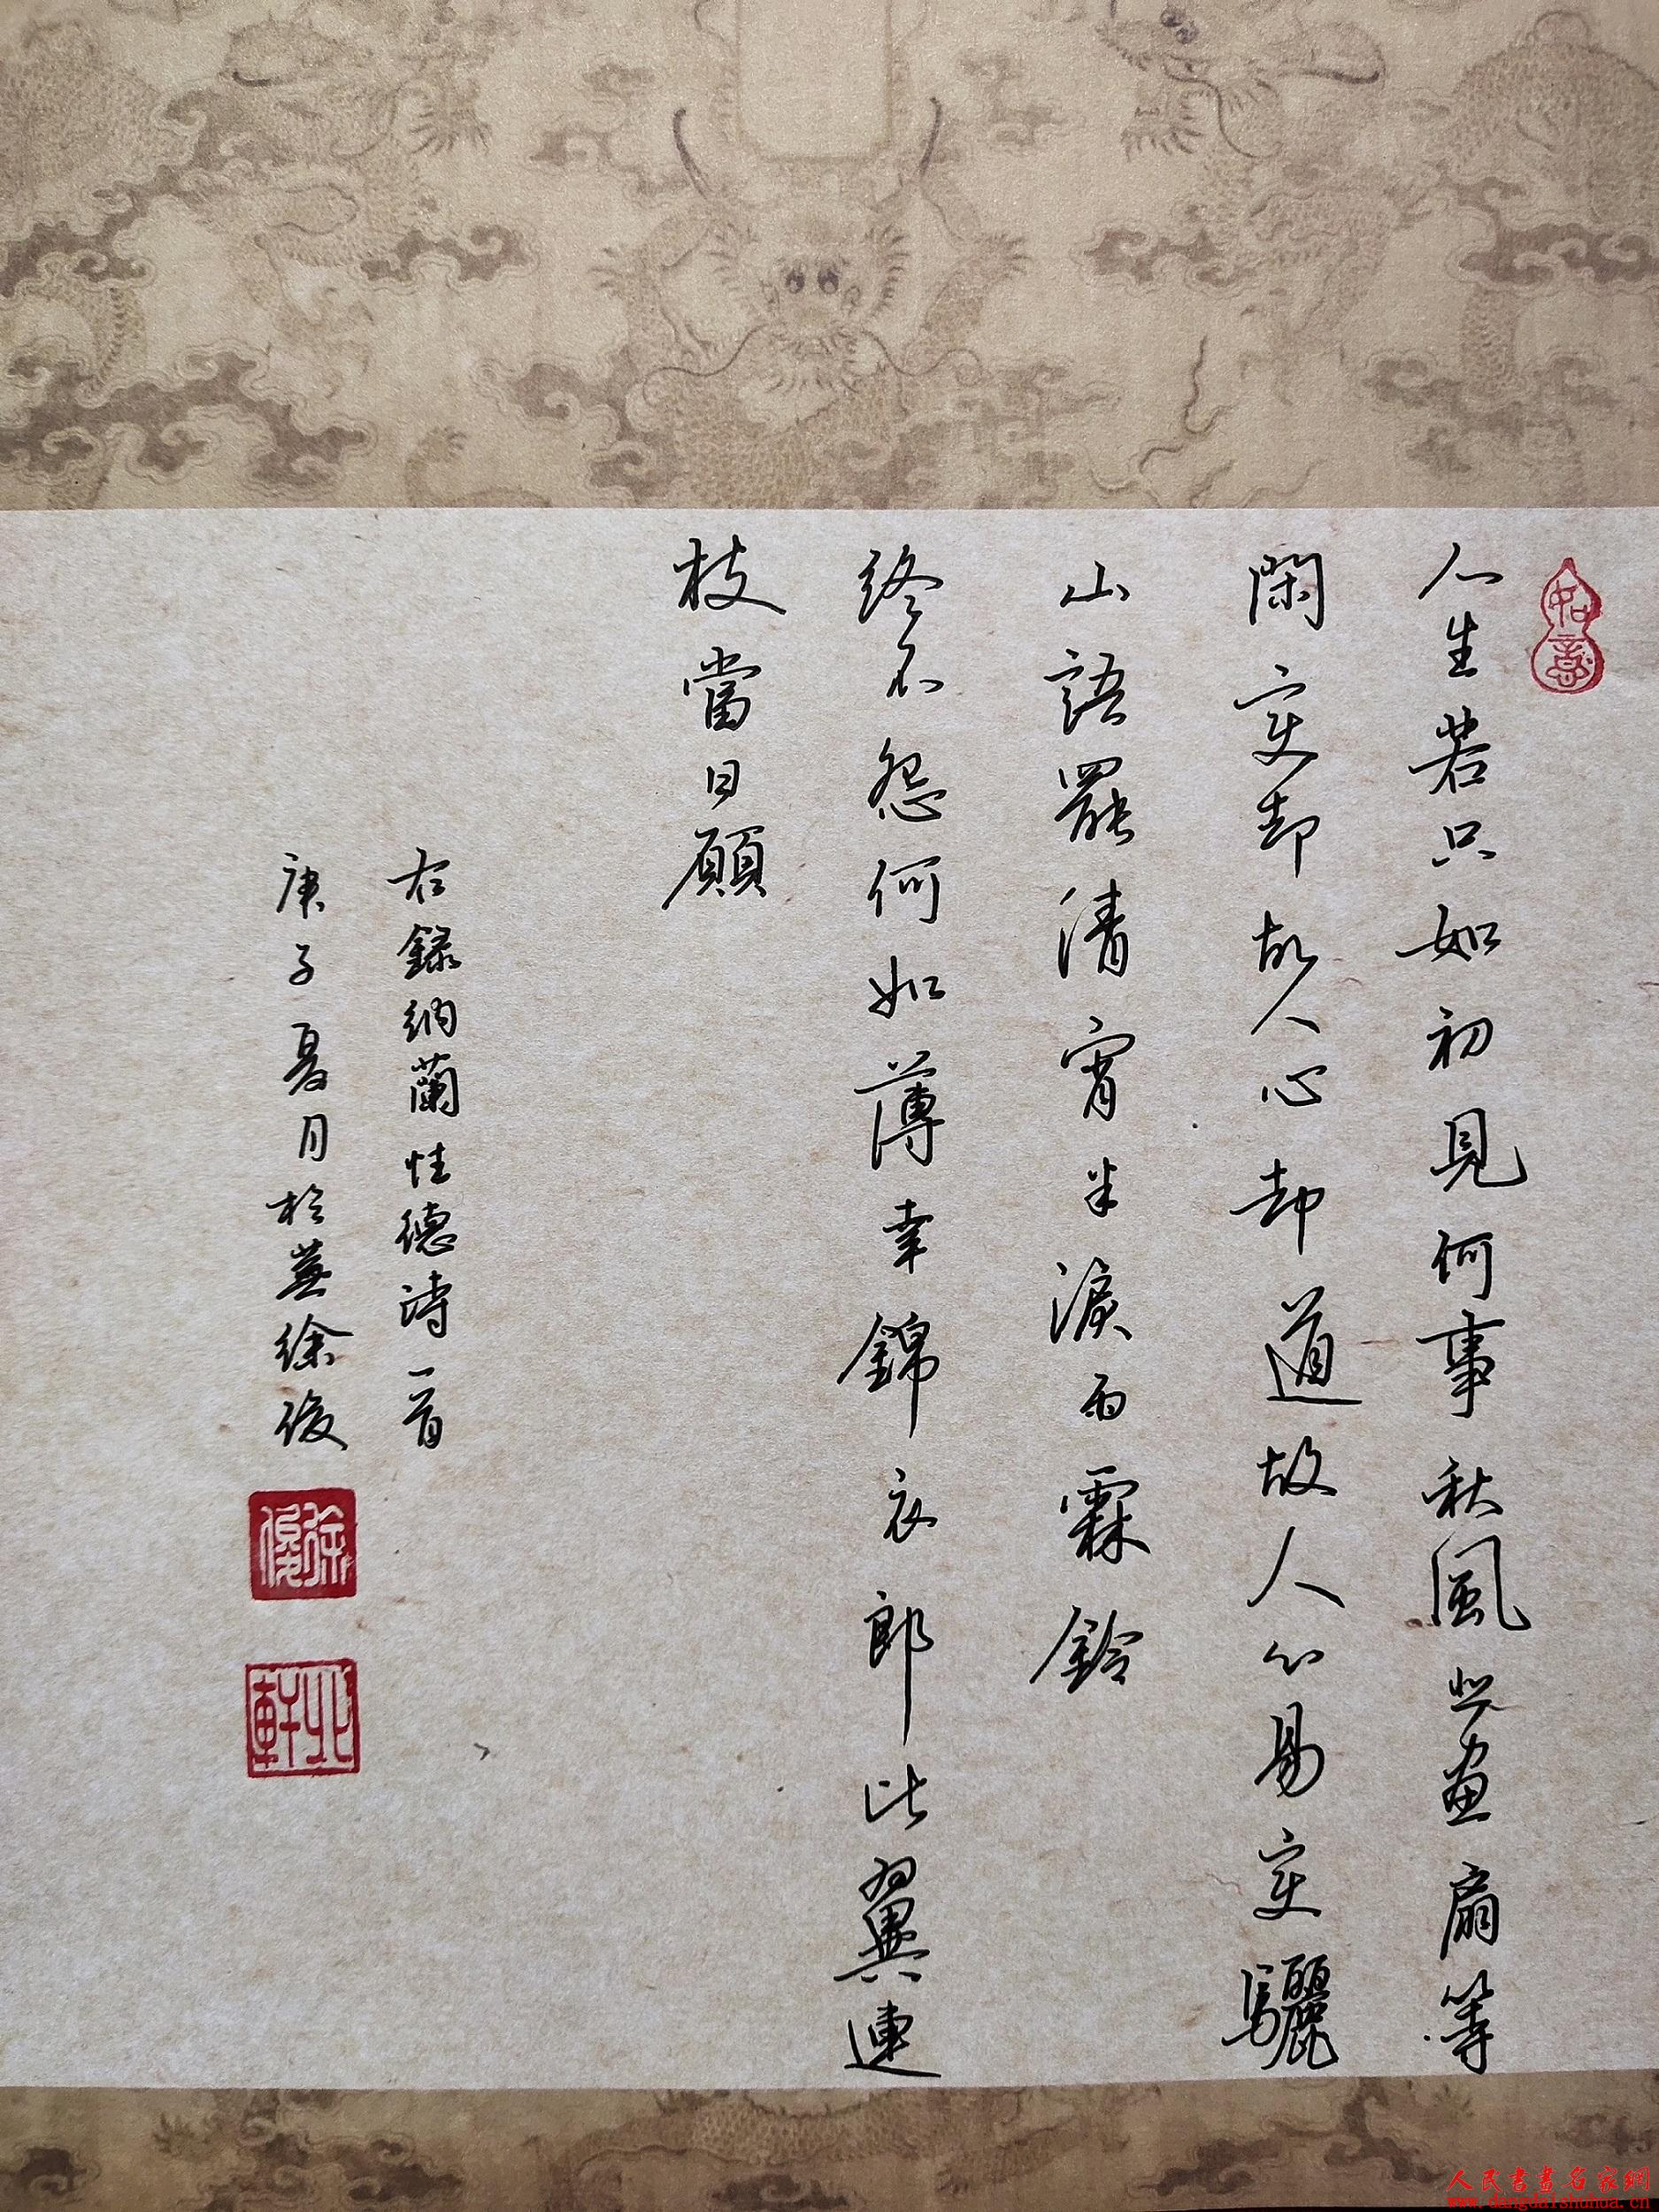 如意
人生若只如初見何事秋風悲畫扇等
閑變却故人心却道故人心易變驪
山語罷清宵半淚雨霖鈴
終不怨何如薄幸錦衣郎比翼連
枝當日願
右錄納蘭性德詩一首
庚子夏月於蕪徐俊
徐俊
北軒
人民書畫名家網
www.dangdaishuhua.cn